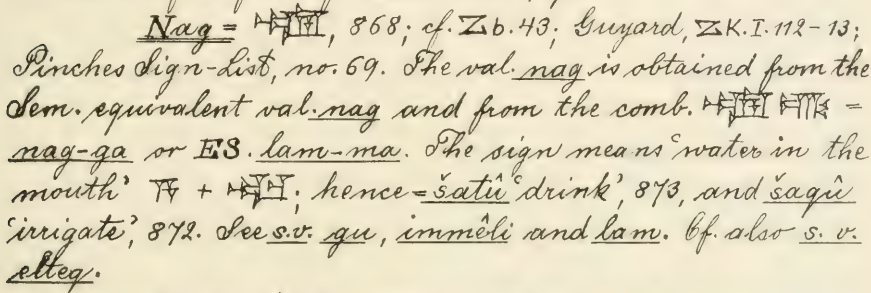 Nag = 𒅘, 868; cf. Zb. 43; Guyard, ZK. I. 112-13;
Pinches Sign-List, no. 69. The val. nag is obtained from the
Sem. equivalent val. nag and from the comb. 𒅘 𒂵 =
nag-ga or ES. lam-ma. The sign means ‘water in the
mouth’ 𒀀 + 𒅗; hence = šatû ‘drink’, 873, and šaqû
‘irrigate’, 872. See s.v. gu, immêli and lam. Cf. also s. v.
elteg.